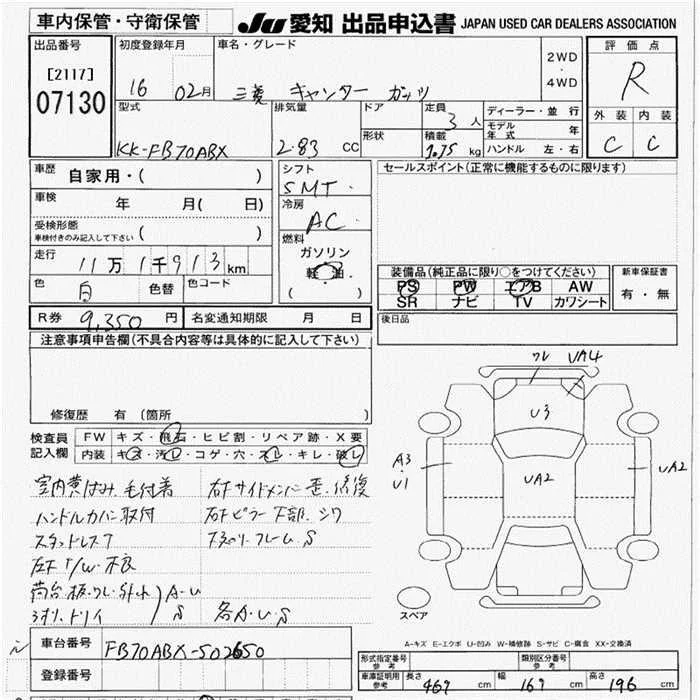 車内保管・守衛保管
JU 愛知 出品申込書 JAPAN USED CAR DEALERS ASSOCIATION
出品番号
[2117]
07130
初度登録年月
16 02月
車名・グレード
三菱 キャンター ガッツ
2WD
・
4WD
評価点
R
外装 内装
C C
型式
KK-FB70ABX
排気量
2.83 CC
ドア
形状
定員
3人
積載
1.75 kg
ディーラー・並行
モデル年式 年
ハンドル 左・右
車歴 自家用・( )
車検 年 月( 日)
受検形態
車検付きのみ記入して下さい ( )
走行 11万1千913km
色 白 色替 色コード
シフト
5MT
冷房
AC
燃料
ガソリン
軽・油
( )
セールスポイント(正常に機能するものに限ります)
装備品(純正品に限り○をつけてください)
PS PW エアB AW
SR ナビ TV カワシート
新車保証書
有・無
R券 9,350円 名変通知期限 月 日
後日品
注意事項申告欄(不具合内容等は具体的に記入して下さい)
修復歴 有(箇所 )
検査員記入欄
FW キズ・飛石・ヒビ割・リペア跡・X要
内装 キズ・汚レ・コゲ・穴・スレ・キレ・破レ
室内黄ばみ、毛付着
ハンドルカバー取付
スタッドレスT
荷台・板・ワレ・外れ
A・U
S
右F サイドメンバー 歪、修復
右Fピラー下部、シワ
下まわり、フレーム、S
各A・U・S
ワレ UA4
U3
A3
U1
UA2
UA2
スペア
A-キズ E-エクボ U-凹み W-補修跡 S-サビ C-腐食 XX-交換済
車台番号 FB70ABX-502650
登録番号
形式指定番号
参考
類別区分番号
参考
車庫証明用
参考
長さ 469 cm 幅 169 cm 高さ 196 cm